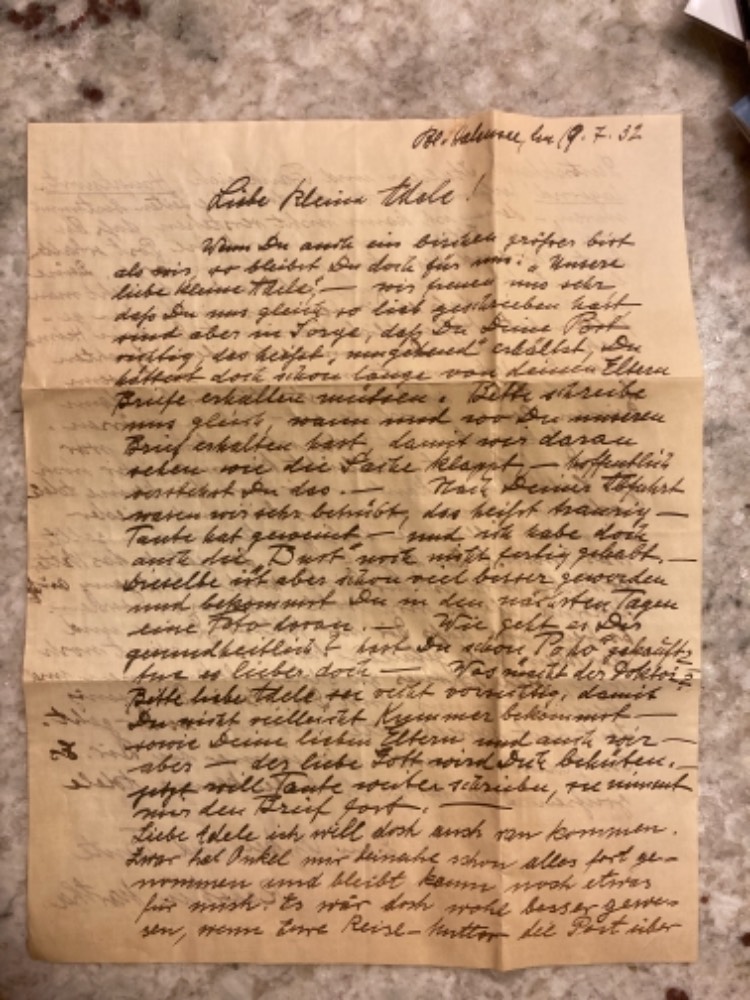 den 9. 7. 32
Liebe kleine Adele!
Wenn Du auch ein bischen größer bist
als wir, so bleibst Du doch für uns: „Unsere
liebe kleine Adele! — wir freuen uns sehr
daß Du uns gleich so lieb geschrieben hast
sind aber in Sorge, daß Du Deine Post
richtig, das heißt, umgehend" erhältst, Du
hättest doch schon lange von deinen Eltern
Briefe erhalten müssen. Bitte schreibe
uns gleich, wann und wo Du unseren
Brief erhalten hast, damit wir daran
sehen wie die Sache klappt, — hoffentlich
verstehst Du das. — Nach Deiner Abfahrt
waren wir sehr betrübt, das heißt traurig —
Tante hat geweint — und ich habe doch
auch die noch nicht fertig gehabt. —
Dieselbe ist aber schon viel besser geworden
und bekommst Du in den nächsten Tagen
eine Foto davon. — Wie geht es Dir
gesundheitlich? hast Du schon
tue es lieber doch — Was macht der Doktor?
Bitte liebe Adele sei recht vorsichtig, damit
Du nicht vielleicht Kummer bekommst —
sowie Deine lieben Eltern und auch wir —
aber — der liebe Gott wird Dich behüten. —
jetzt will Tante weiter schreiben, sie nimmt
mir den Brief fort. —
Liebe Adele ich will doch auch ran kommen.
Zwar hat Onkel mir beinahe schon alles fort ge-
nommen und bleibt kaum noch etwas
für mich. Es wär doch wohl besser gewe-
sen, wenn Eure Reise-Mutter die Post über